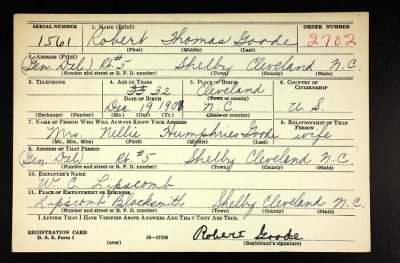 SERIAL NUMBER 1. NAME (Print) ORDER NUMBER
1561 Robert Thomas Goode 2702
(First) (Middle) (Last)
2. ADDRESS (Print)
(Gen. Del.) Rt #5 Shelby Cleveland N.C.
(Number and street or R. F. D. number) (Town) (County) (State)
3. TELEPHONE 4. AGE IN YEARS 5. PLACE OF BIRTH 6. COUNTRY OF CITIZENSHIP
32 Cleveland
DATE OF BIRTH (Town or county)
Dec. 19 N.C. U.S.
(Exchange) (Number) (Mo.) (Day) (Yr.) (State or country)
7. NAME OF PERSON WHO WILL ALWAYS KNOW YOUR ADDRESS 8. RELATIONSHIP OF THAT PERSON
Mrs. Nellie Humphries Goode wife
(Mr., Mrs., Miss) (First) (Middle) (Last)
9. ADDRESS OF THAT PERSON
(Gen. Del) Rt. #5 Shelby Cleveland N.C.
(Number and street or R. F. D. number) (Town) (County) (State)
10. EMPLOYER'S NAME
W. C. Lipscomb
11. PLACE OF EMPLOYMENT OR BUSINESS
Lipscomb Blacksmith Shelby Cleveland N.C.
(Number and street or R. F. D. number) (Town) (County) (State)
I AFFIRM THAT I HAVE VERIFIED ABOVE ANSWERS AND THAT THEY ARE TRUE.
REGISTRATION CARD
D. S. S. Form 1 (over) 16—17105 Robert Goode
(Registrant's signature)